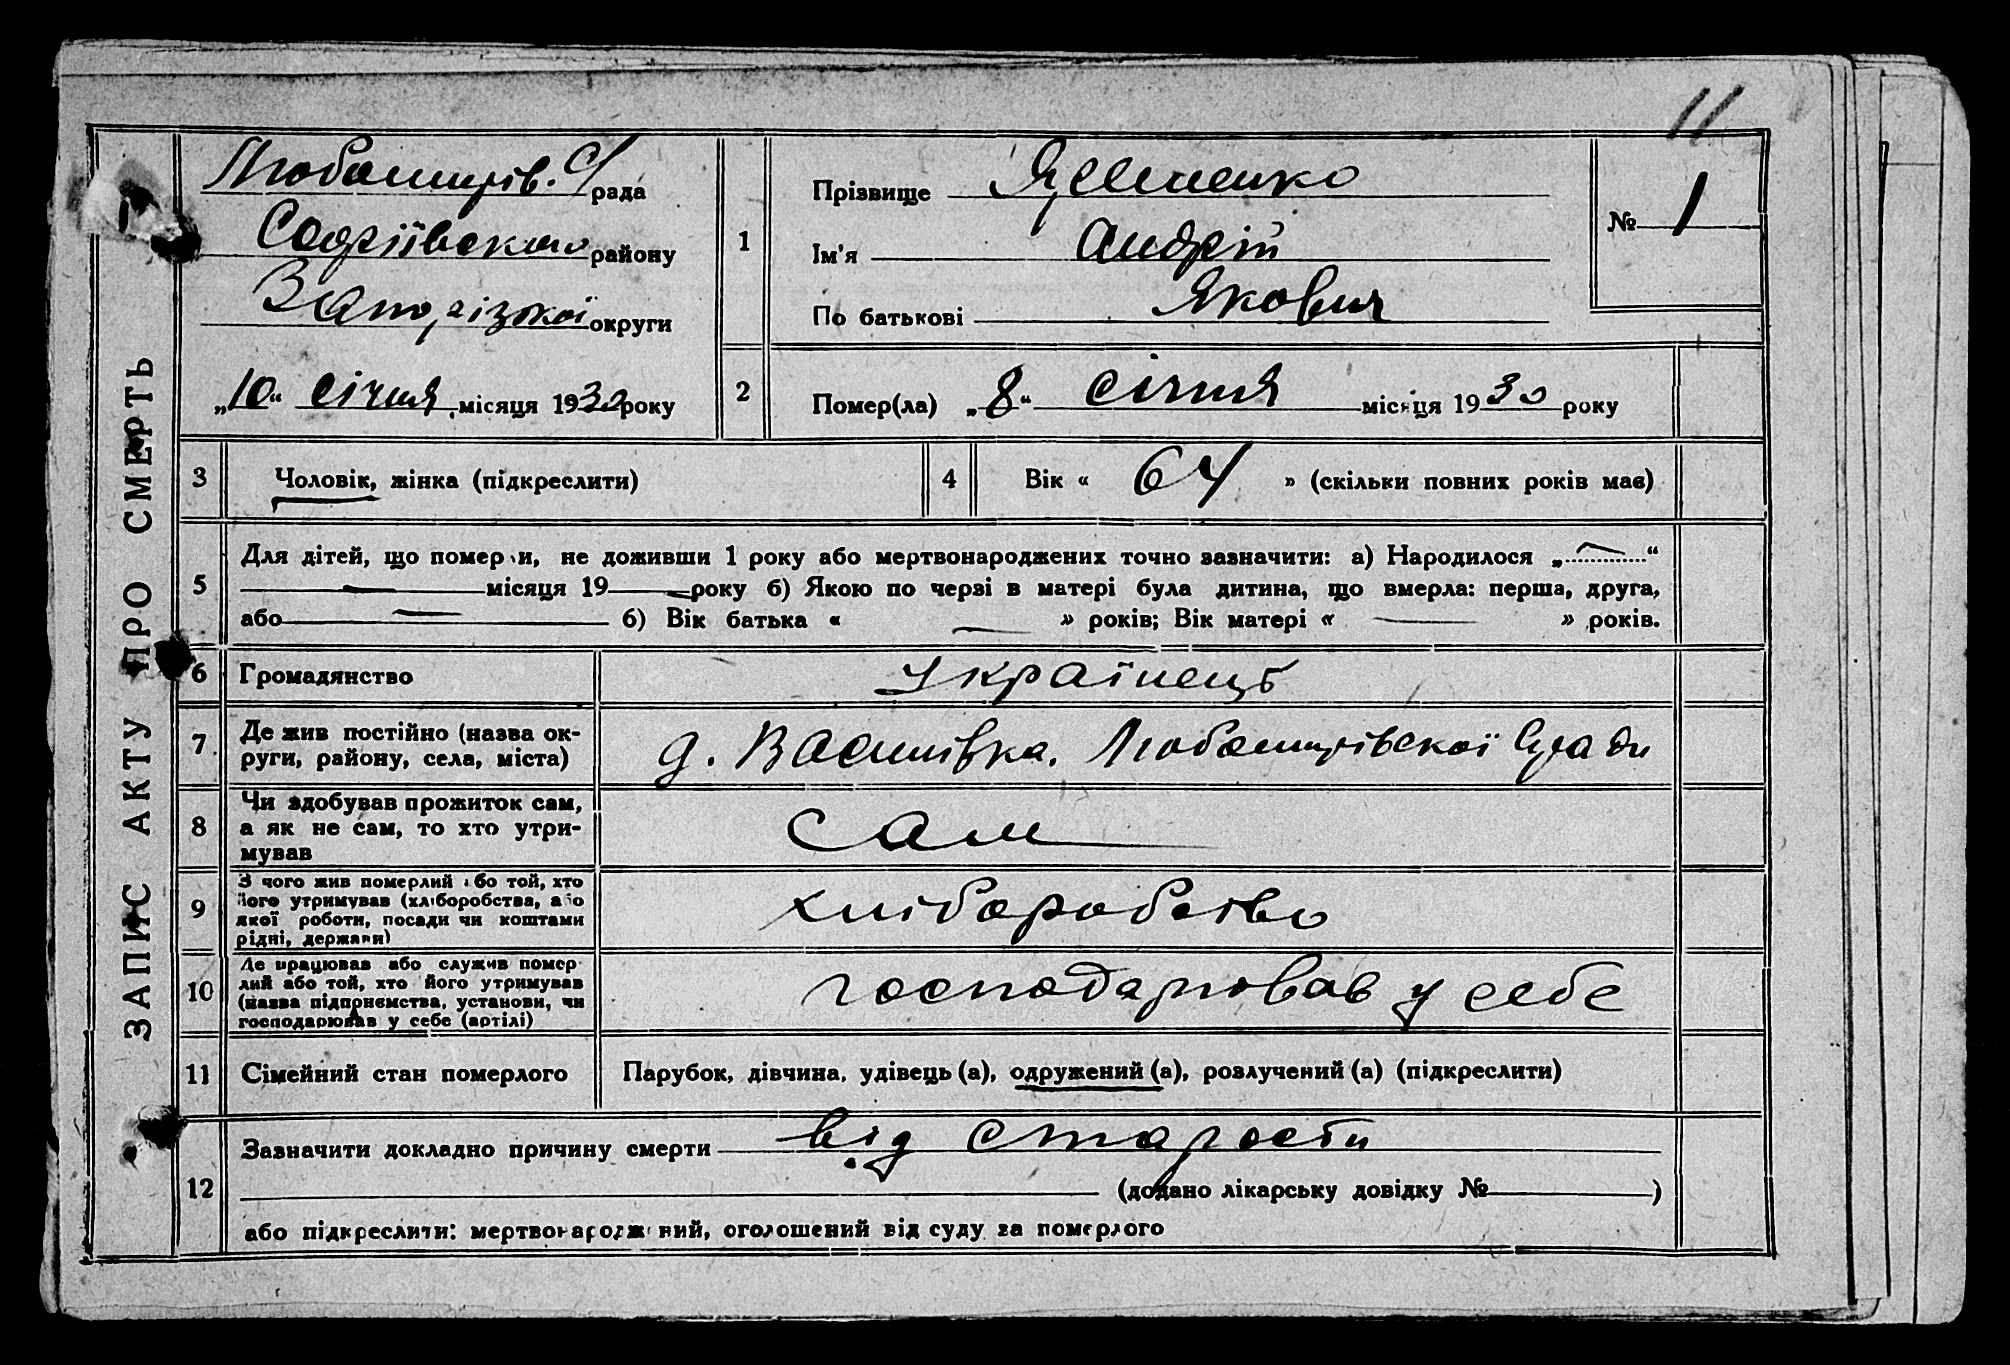 11
ЗАПИС АКТУ ПРО СМЕРТЬ
Любомирів. С/рада
Софіївского району
Запорізкої округи
„10“ січня місяця 1930 року
1
Прізвище
Ім'я Андрій
По батькові Якович
№ 1
2
Помер(ла) „8“ січня місяця 1930 року
3 Чоловік, жінка (підкреслити)
4 Вік « 64 » (скільки повних років мав)
5
Для дітей, що померли, не доживши 1 року або мертвонароджених точно зазначити: а) Народилося „ — “
— місяця 19 — року б) Якою по черзі в матері була дитина, що вмерла: перша, друга,
або — б) Вік батька « — » років; Вік матері « — » років.
6 Громадянство українець
7 Де жив постійно (назва ок-
руги, району, села, міста)
д. Василівка, Любомирівскої С/ради
8 Чи здобував прожиток сам,
а як не сам, то хто утри-
мував
сам
9 З чого жив померлий або той, хто
його утримував (хліборобства, або
якої роботи, посади чи коштами
рідні, держави)
хліборобство
10 Де працював або служив помер-
лий або той, хто його утримував
(назва підприємства, установи, чи
господарював у себе (артілі)
господарював у себе
11 Сімейний стан померлого Парубок, дівчина, удівець (а), одружений (а), розлучений (а) (підкреслити)
12
Зазначити докладно причину смерти від старости
(додано лікарську довідку № )
або підкреслити: мертвонароджений, оголошений від суду за померлого